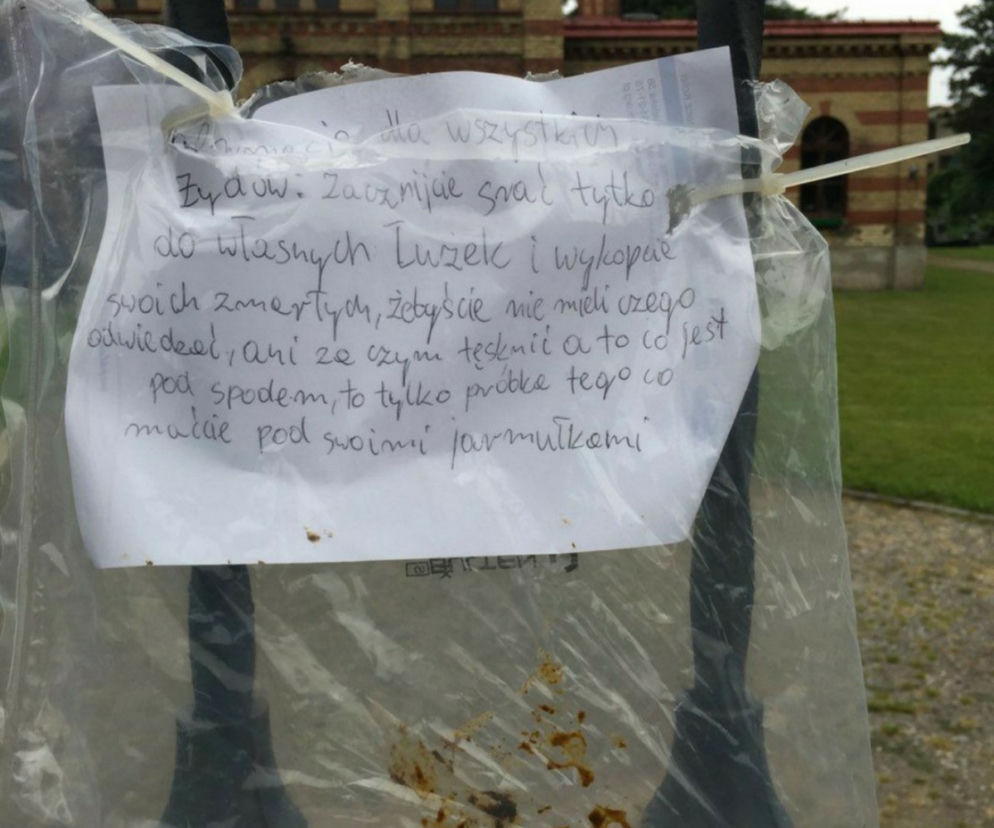 dla wszystkich
Żydów: Zacznijcie srać tylko
do własnych Łużek i wykopcie
swoich zmarłych, żebyście nie mieli czego
odwiedzać, ani za czym tęsknić a to co jest
pod spodem, to tylko próbka tego co
macie pod swoimi jarmułkami